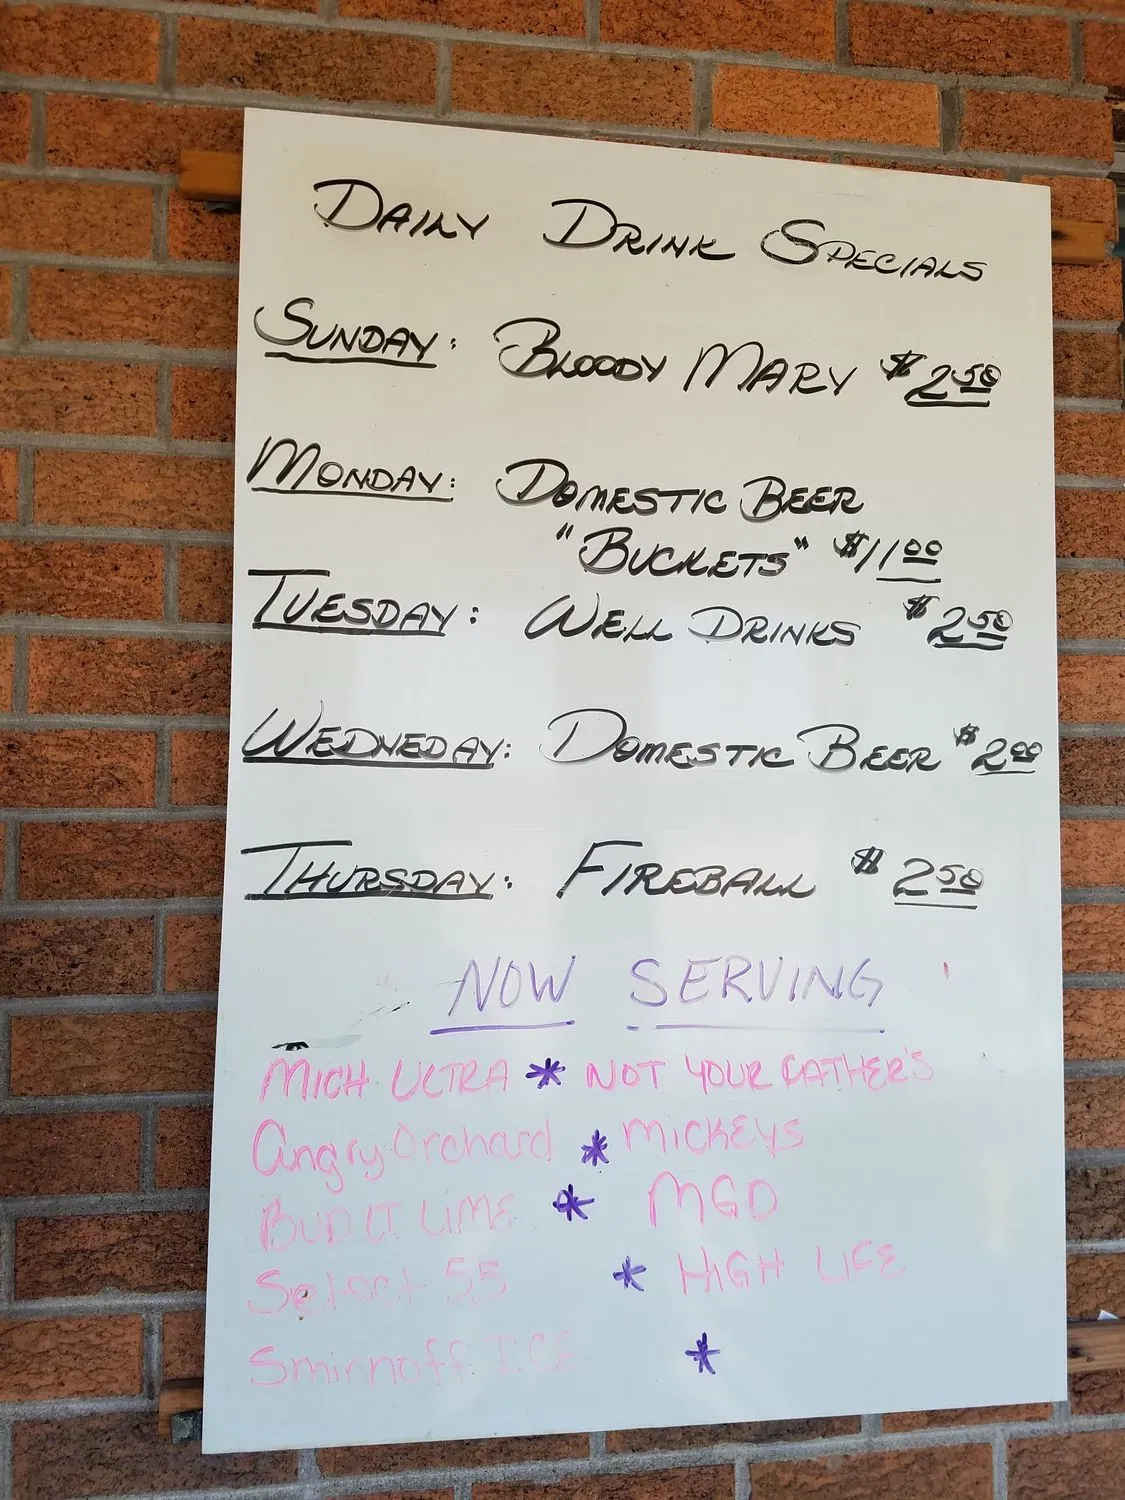 DAILY DRINK SPECIALS
SUNDAY: BLOODY MARY $2.50
MONDAY: DOMESTIC BEER
"BUCKETS" $11.00
TUESDAY: WELL DRINKS $2.50
WEDNEDAY: DOMESTIC BEER $2.00
THURSDAY: FIREBALL $2.50
NOW SERVING
MICH ULTRA * NOT YOUR FATHER'S
Angry Orchard * MICKEYS
BUD LT LIME * MGD
Select 55 * HIGH LIFE
Smirnoff ICE *